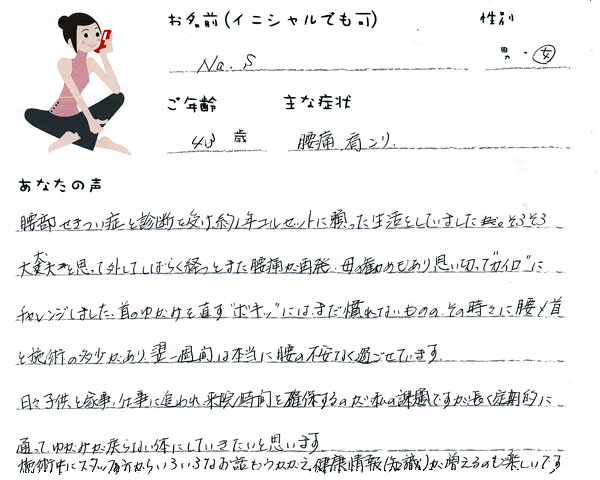 お名前(イニシャルでも可) 性別
Na. S 男・女
ご年齢 主な症状
43 歳 腰痛、肩コリ.
あなたの声
腰部せきつい症と診断を受け、約1年コルセットに頼った生活をしていました。そろそろ
大丈夫と思って外してしばらく経つとまた腰痛が再発、母の勧めもあり思い切って"カイロ"に
チャレンジしました。首のゆがみを直す"ボキッ"には、まだ慣れないものの、その時々に腰や首
と施術の多少があり、翌一週間は本当に腰の不安なく過ごせています.
日々子供と家事、仕事に追われ、来院時間を確保するのが私の課題ですが、長く定期的に
通って、ゆがみが戻らない体にしていきたいと思います
施術中にスタッフの方からいろいろなお話もうかがえ、健康情報(知識)が増えるのも楽しいです